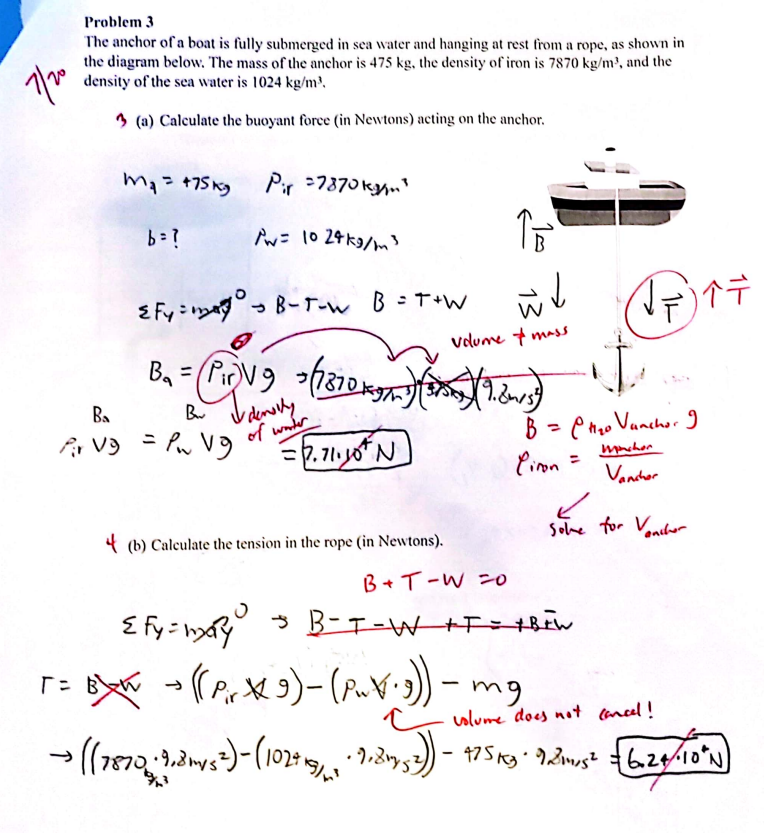 Problem 3
The anchor of a boat is fully submerged in sea water and hanging at rest from a rope, as shown in
the diagram below. The mass of the anchor is 475 kg, the density of iron is 7870 kg/m³, and the
density of the sea water is 1024 kg/m³.
7/20
3 (a) Calculate the buoyant force (in Newtons) acting on the anchor.
m_a = 475 kg ρ_ir = 7870 kg/m³
b = ? ρ_w = 1024 kg/m³
↑ B⃗
ΣF_y = ma_y⁰ → B-T-W B = T+W W⃗ ↓ ↓ T⃗ ↑ T⃗
volume ≠ mass
B_a = ρ_ir V g → (7870 kg/m³)(475kg)(9.8m/s²)
↓ density
of water
B_a B_w
ρ_ir V g = ρ_w V g = 7.71·10⁴ N
B = ρ_H₂O V_anchor g
ρ_iron = m_anchor / V_anchor
solve for V_anchor
4 (b) Calculate the tension in the rope (in Newtons).
B + T - W = 0
ΣF_y = ma_y⁰ → B - T - W + T = +B+W
T = B - W → ((ρ_ir V g) - (ρ_w V · g)) - mg
volume does not cancel!
→ ((7870 kg/m³ · 9.8m/s²) - (1024 kg/m³ · 9.8m/s²)) - 475 kg · 9.8m/s² = 6.24·10⁴ N